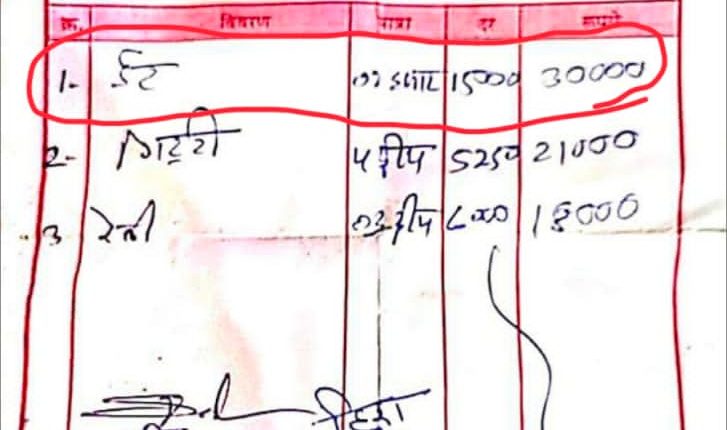 क्र. विवरण मात्रा दर रूपये
1- ईट 02 हजार 15000 30000
2- गिट्टी 4 ट्रीप 5250 21000
3 रेती 03 ट्रीप 6000 18000